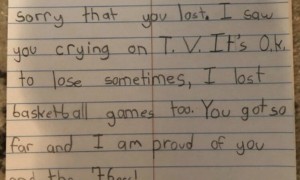 sorry that you lost. I saw
you crying on T.V. It's O.K.
to lose sometimes, I lost
basketball games too. You got so
far and I am proud of you
and the 76ers!